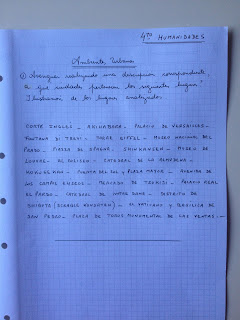 4TO HUMANIDADES
Ambiente Urbano
① Averiguar realizando una descripcion correspondiente
a que ciudades pertenecen los siguientes lugares
Ilustracion de los lugares analizados.
CORTE INGLES - AKIHABARA - PALACIO DE VERSALLES -
FONTANA DI TREVI - TORRE EIFFEL - MUSEO NACIONAL DEL
PRADO - PIAZZA DI SPAGNA - SHINKANSEN - MUSEO DE
LOUVRE - EL COLISEO - CATEDRAL DE LA ALMUDENA -
KOKUGIKAN - PUERTA DEL SOL Y PLAZA MAYOR - AVENIDA DE
LOS CAMPOS ELISEOS - MERCADO DE TSUKIJI - PALACIO REAL
EL PARDO - CATEDRAL DE NOTRE DAME - DISTRITO DE
(SCRABLE KOUSOTEN) - EL VATICANO Y BASILICA DE
SAN PEDRO - PLAZA DE TOROS MONUMENTAL DE LAS VENTAS.-